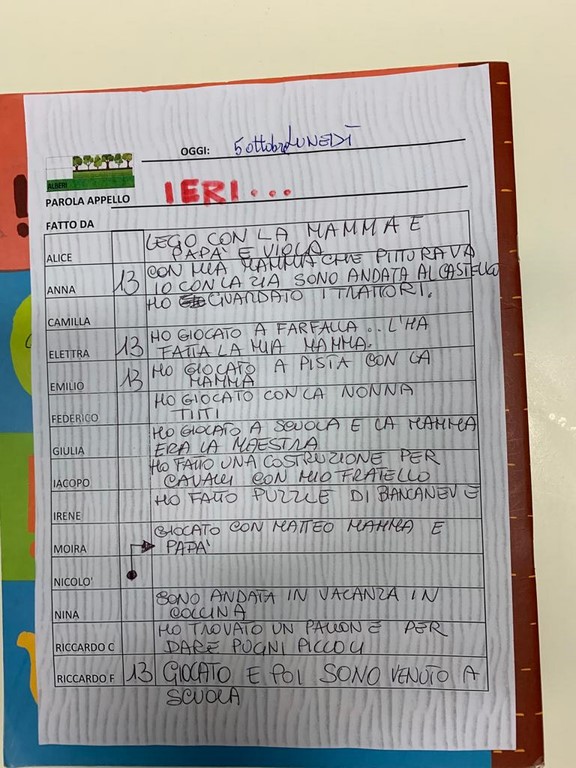 OGGI: 5 ottobre LUNEDÌ
ALBERI
PAROLA APPELLO IERI...
FATTO DA
ALICE LEGO CON LA MAMMA E
PAPÀ E VIOLA
ANNA 13 CON MIA MAMMA CHE PITTURAVA
IO CON LA ZIA SONO ANDATA AL CASTELLO
CAMILLA HO GUARDATO I TRATTORI.
ELETTRA 13 HO GIOCATO A FARFALLA.. L'HA
FATTA LA MIA MAMMA.
EMILIO 13 HO GIOCATO A PISTA CON LA
MAMMA
FEDERICO HO GIOCATO CON LA NONNA
TITI
GIULIA HO GIOCATO A SCUOLA E LA MAMMA
ERA LA MAESTRA
IACOPO HO FATTO UNA COSTRUZIONE PER
CAVALLI CON MIO FRATELLO
IRENE HO FATTO PUZZLE DI BIANCANEVE
MOIRA GIOCATO CON MATTEO MAMMA E
PAPA'
NICOLO'
NINA SONO ANDATA IN VACANZA IN
COLLINA
RICCARDO C HO TROVATO UN PALLONE PER
DARE PUGNI PICCOLI
RICCARDO F 13 GIOCATO E POI SONO VENUTO A
SCUOLA